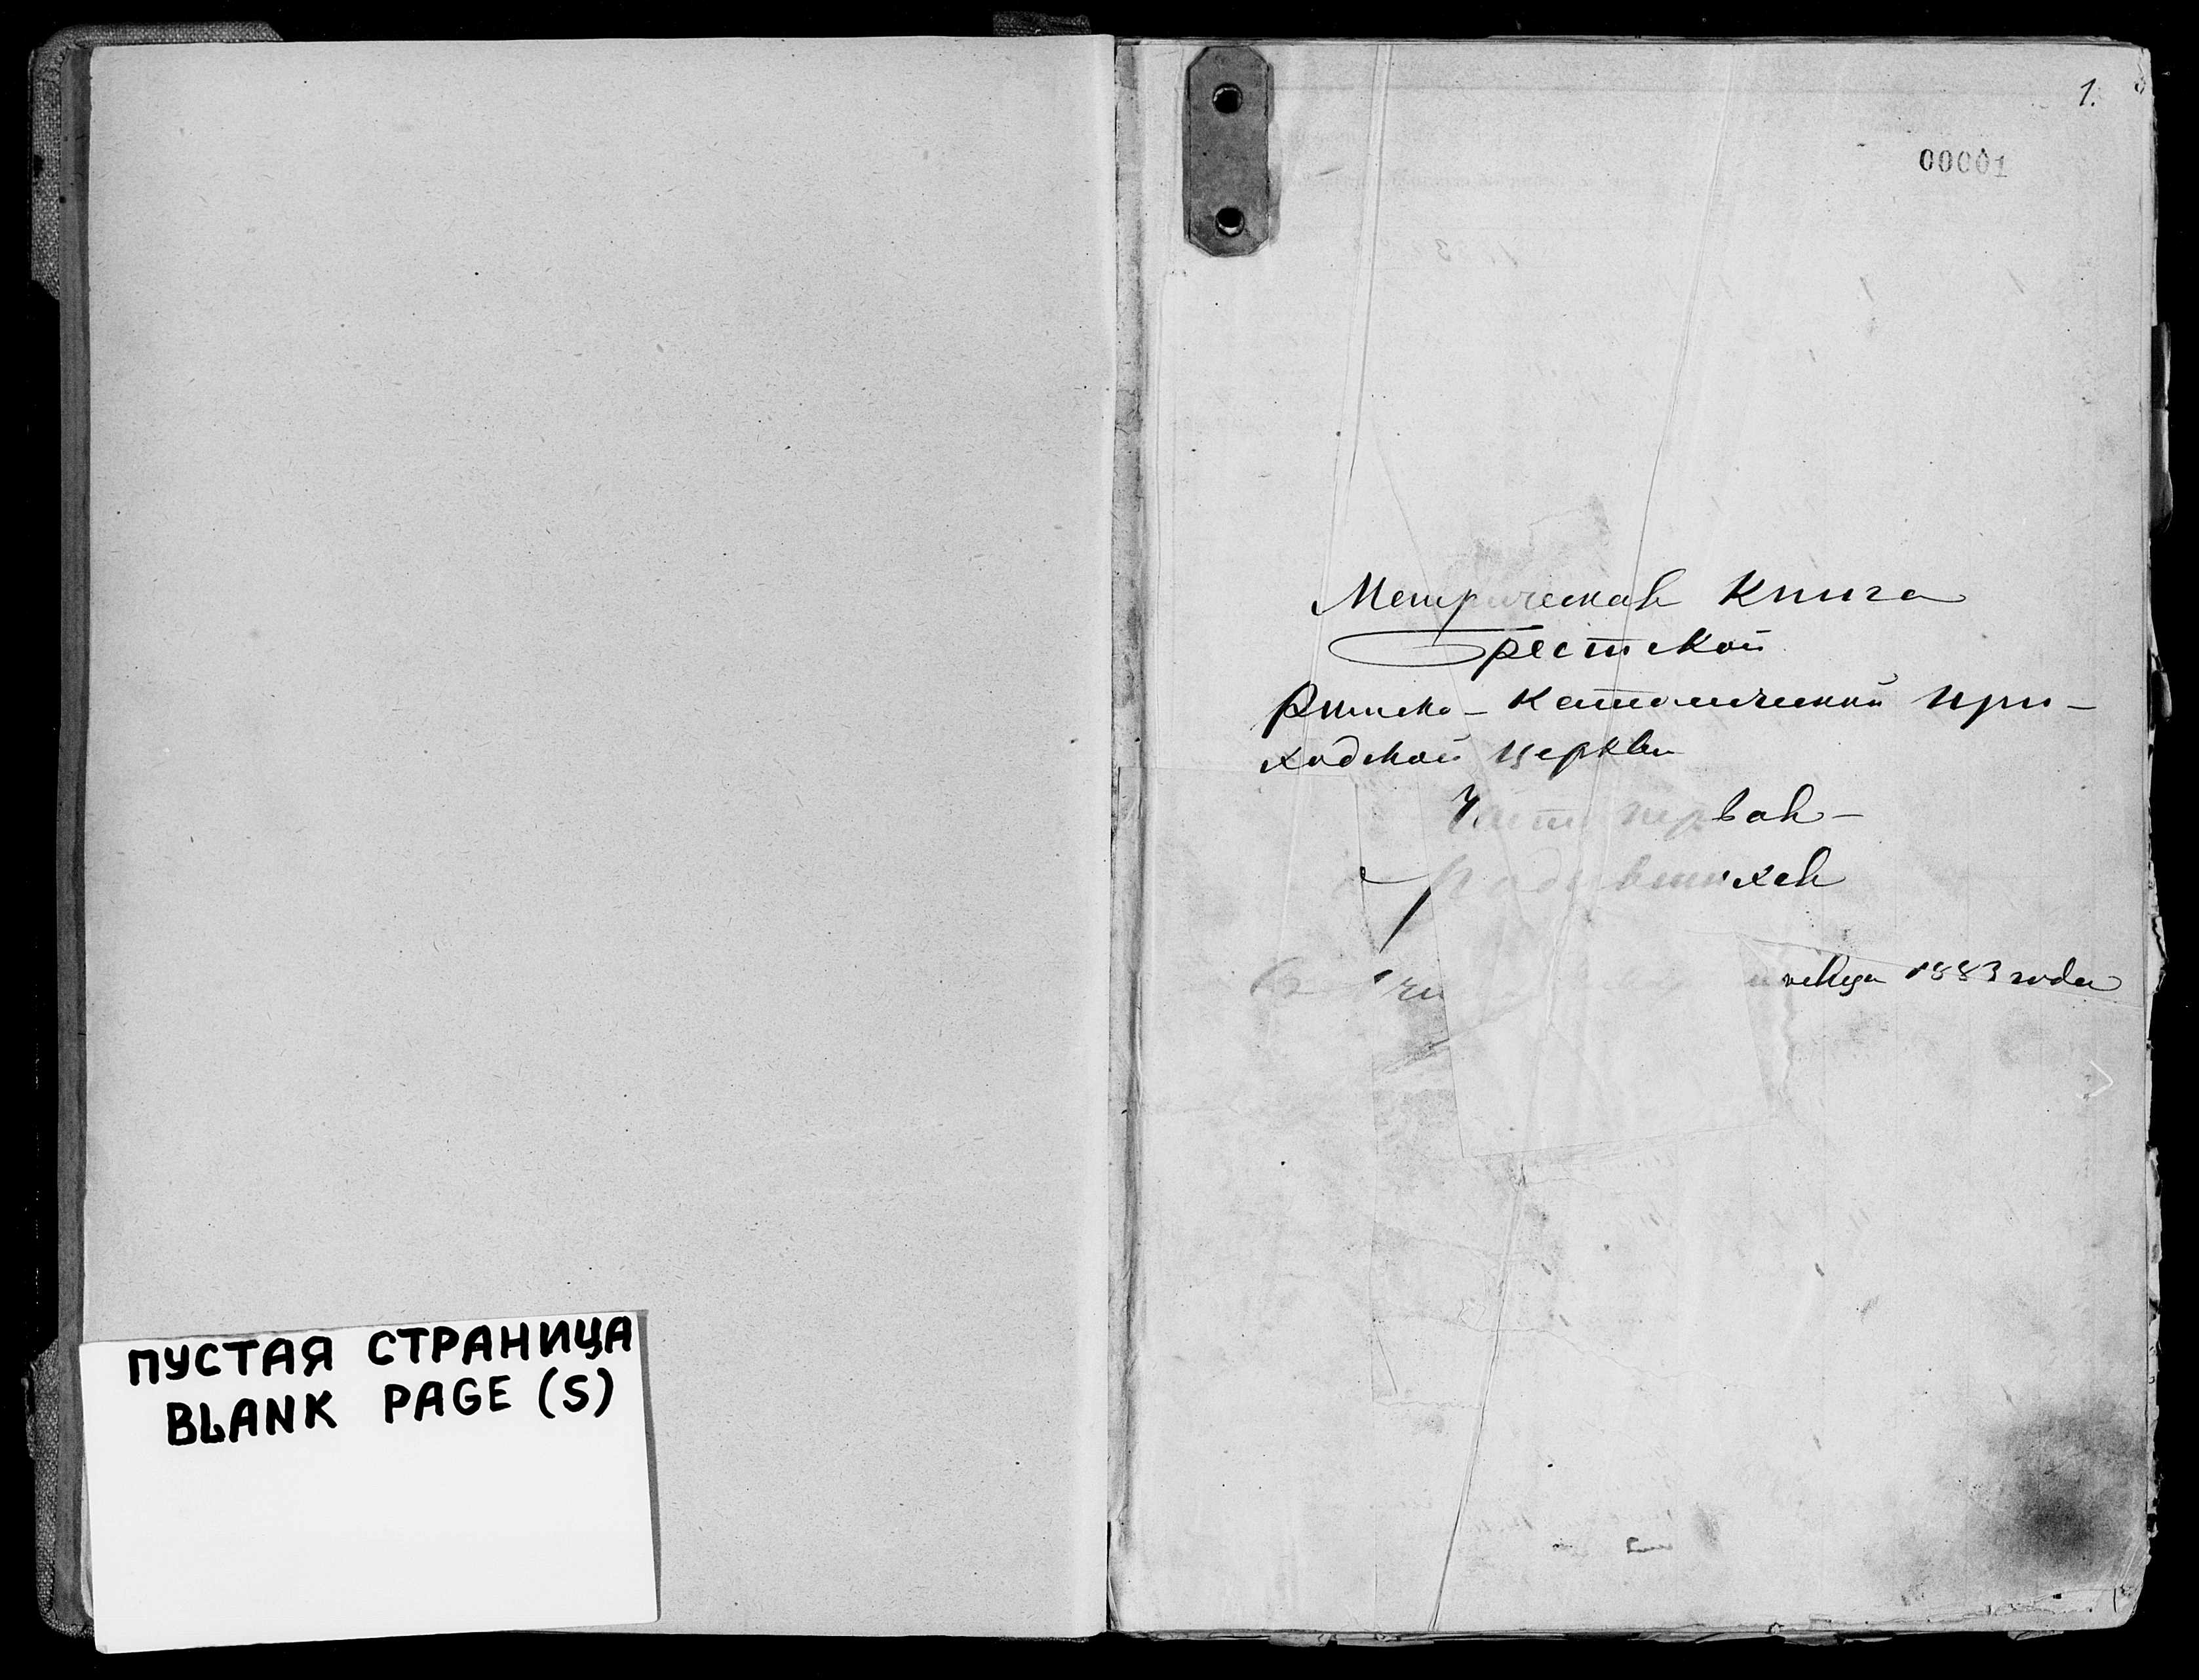 ПУСТАЯ СТРАНИЦА
BLANK PAGE (S)
1.
00001
Метрическая Книга
Брестской
Римско-Католической при-
ходской церкви
Часть первая-
о родившихся
1883 года